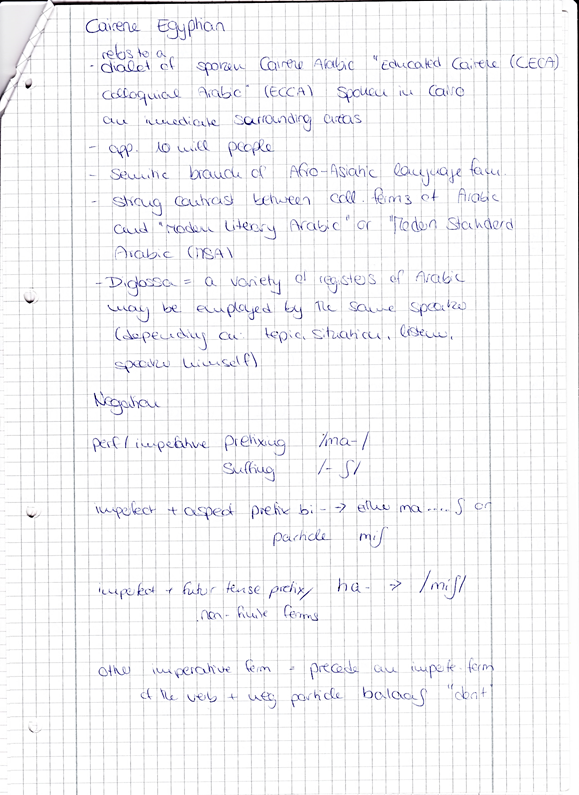 Cairene Egyptian
refers to a
- dialect of spoken Cairene Arabic "Educated Cairene (CECA)
colloquial Arabic" (ECCA) spoken in Cairo
an immediate surrounding areas
- app. 10 mill people
- Semitic branch of Afro-Asiatic language fam.
- strong contrast between coll. forms of Arabic
and "Modern Literary Arabic" or "Modern Standard
Arabic (MSA)
- Diglossa = a variety of registers of Arabic
may be employed by the same speaker
(depending on: topic, situation, listener,
speaker himself)
Negation
perf / imperative prefixing /ma-/
suffixing /-ʃ/
imperfect + aspect prefix bi- → either ma....ʃ or
particle miʃ
imperfect + futur tense prefix/ ha- → /miʃ/
non-finite forms
other imperative form = precede an imperf. form
of the verb + neg particle balaaʃ "dont"